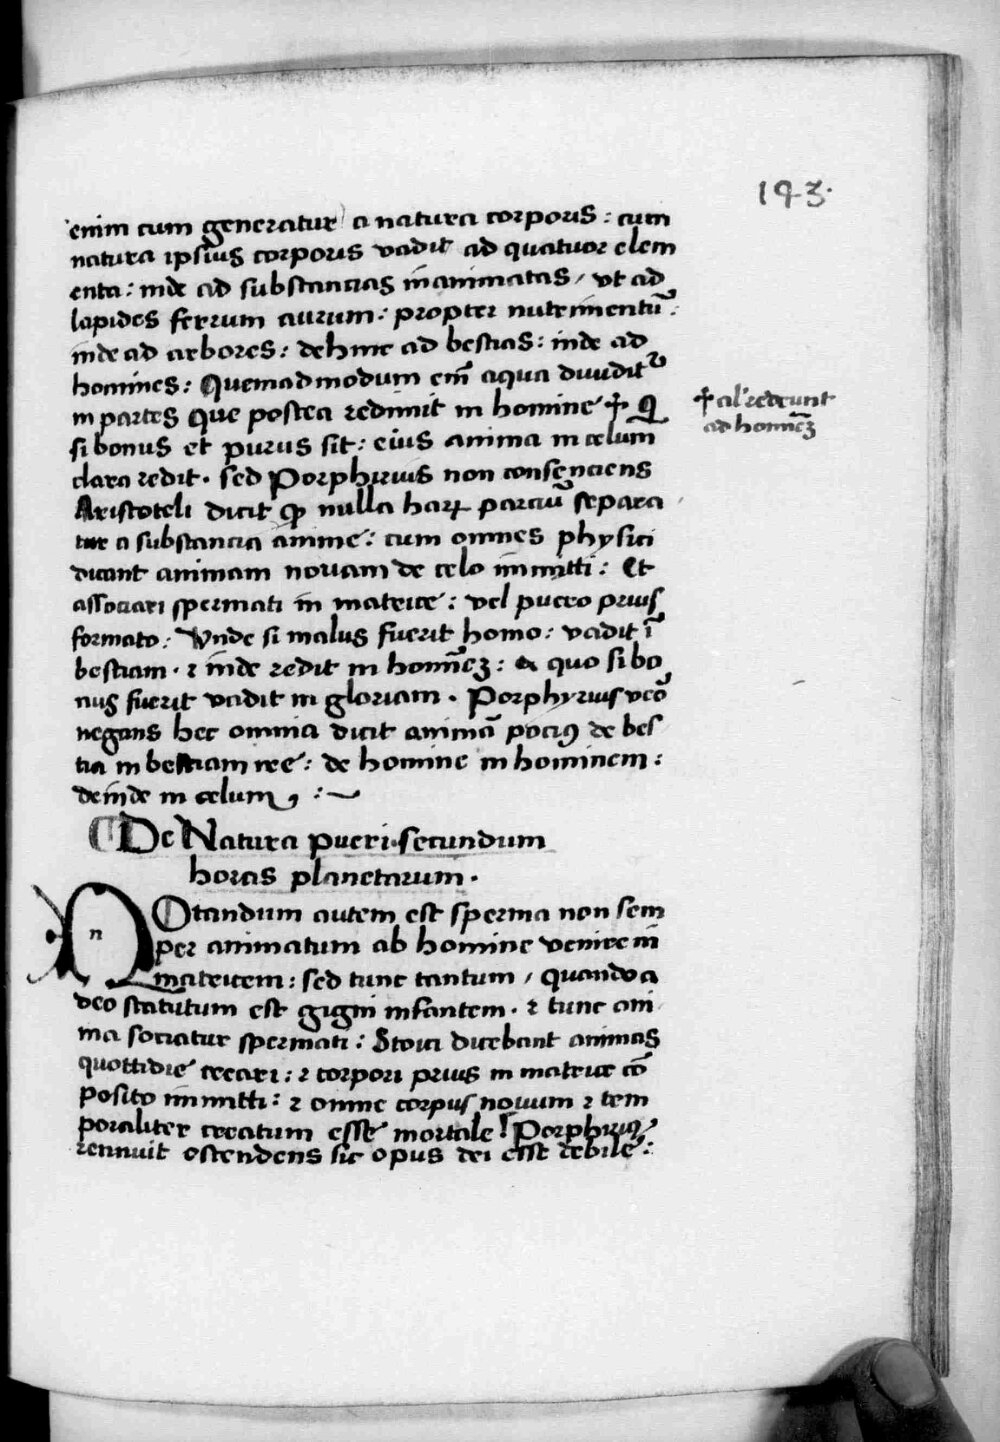 193.
enim cum generatur a natura corporis : cum
natura ipsius corporis vadit ad quatuor elem
enta : inde ad substancias inanimatas / ut ad
lapides ferrum aurum : propter nutrimentū :
inde ad arbores : dehinc ad bestias : inde ad
homines : Quemadmodum em̄ aqua diuidit᷑
in partes que postea redimit in homine ✝ Q
✝ al' redeunt
ad hominēꝫ
si bonus et purus sit : eius anima in celum
clara redit . sed Porphirius non consenciens
Aristoteli dicit ꝙ nulla harꝝ parciū separa
tur a substancia anime : cum omnes physici
dicant animam nouam de celo īmitti : Et
associari spermati in matrice : vel puero prius
formato : Vnde si malus fuerit homo : vadit ī
bestiam . ⁊ inde redit in hominēꝫ : ex quo si bo
nus fuerit vadit in gloriam . Porphyrius vero
negans hec omnia dicit animā pociꝰ de bes
tia in bestiam ire : de homine in hominem :
deinde in celum , : ~
¶ De Natura pueri . secundum
horas planetarum .
n
NOtandum autem est sperma non sem
per animatum ab homine venire in
matricem : sed tunc tantum / quando a
deo statutum est gigni infantem . ⁊ tunc ani
ma sociatur spermati : Stoici dicebant animas
quottidie creari : ⁊ corpori prius in matrice cō
posito immitti : ⁊ omne corpus nouum ⁊ tem
poraliter creatum esse mortale ! Porphiriꝰ
rennuit ostendens sic opus dei esse debile :